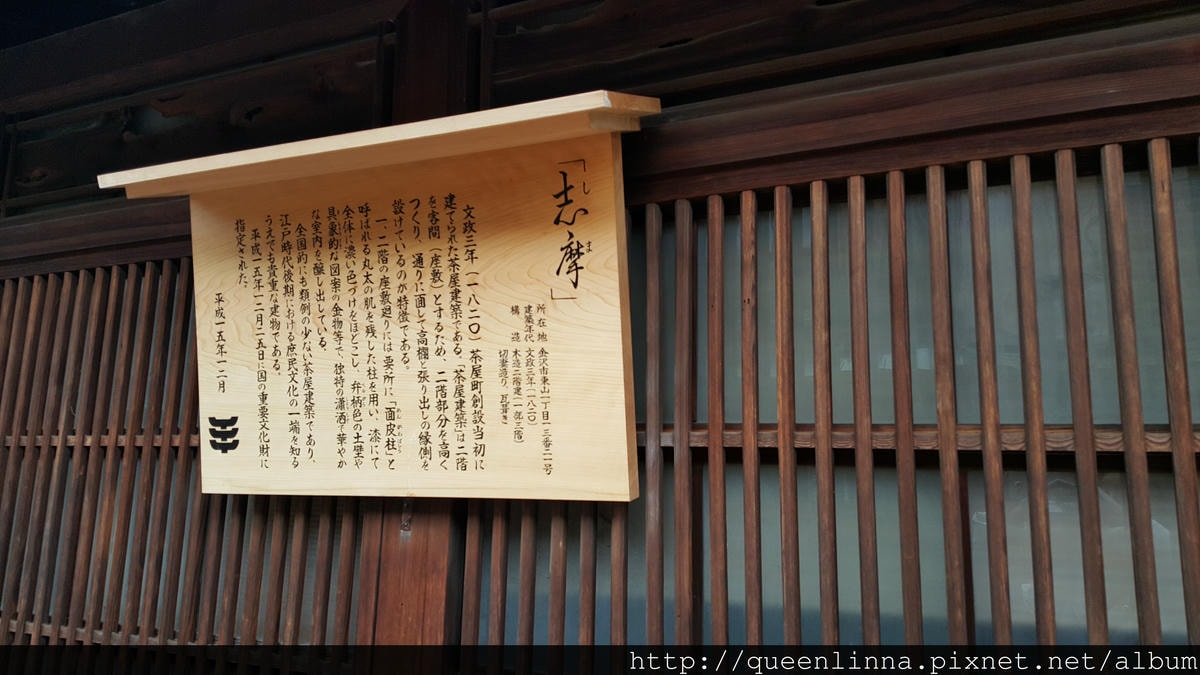 「志摩」
し ま
所在地 金沢市東山一丁目一三番二一号
建築年代 文政三年(一八二〇)
構造 木造二階建(一部三階)
切妻造り、瓦葺き
文政三年(一八二〇)茶屋町創設当初に
建てられた茶屋建築である。「茶屋建築」は二階
を客間(座敷)とするため、二階部分を高く
つくり、通りに面して高欄と張り出しの縁側を
設けているのが特徴である。
一、二階の座敷廻りには要所に「面皮柱」と
呼ばれる丸太の肌を残した柱を用い、漆にて
全体に濃い色づけをほどこし、弁柄色の土壁や
具象的な図案の金物等で、独特の瀟洒で華やか
な室内を醸し出している。
全国的にも類例の少ない茶屋建築であり、
江戸時代後期における庶民文化の一端を知る
うえでも貴重な建物である。
平成一五年一二月二五日に国の重要文化財に
指定された。
平成一五年一二月
http://queenlinna.pixnet.net/album